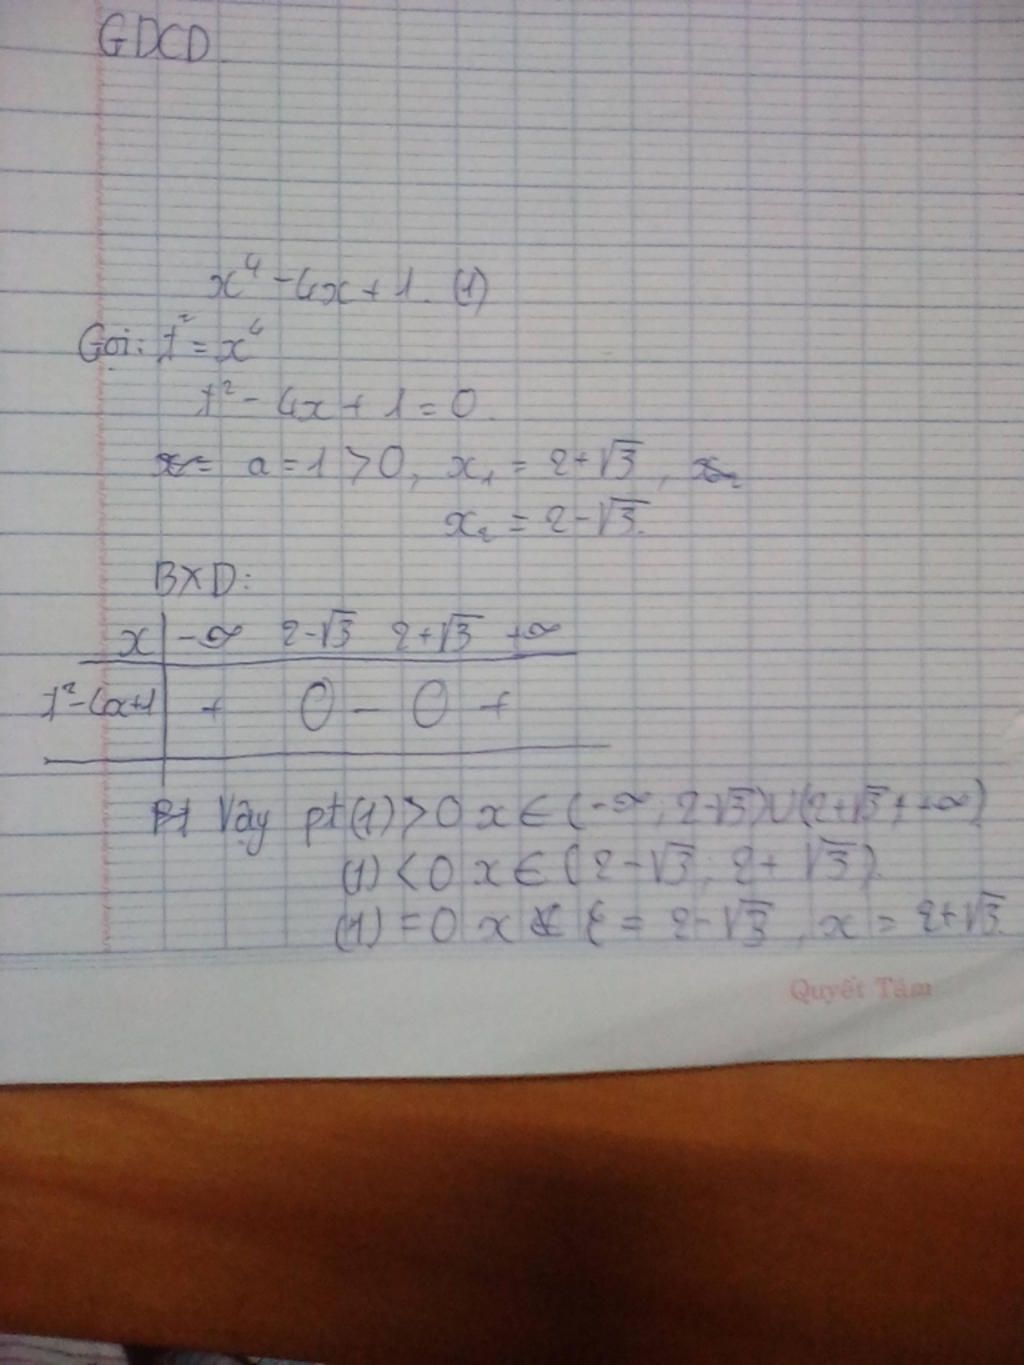 GDCD
x⁴ - 4x + 1. (1)
Gọi: t² = x⁴
t² - 4x + 1 = 0.
a = 1 > 0, x₁ = 2+√3,
x₂ = 2-√3.
BXD:
x | -∞ 2-√3 2+√3 +∞
t²-4x+1 | + 0 - 0 +
Vậy pt (1) > 0 x ∈ (-∞; 2-√3) ∪ (2+√3; +∞)
(1) < 0 x ∈ (2-√3; 2+√3).
(1) = 0 x = 2-√3, x = 2+√3.
Quyết Tâm